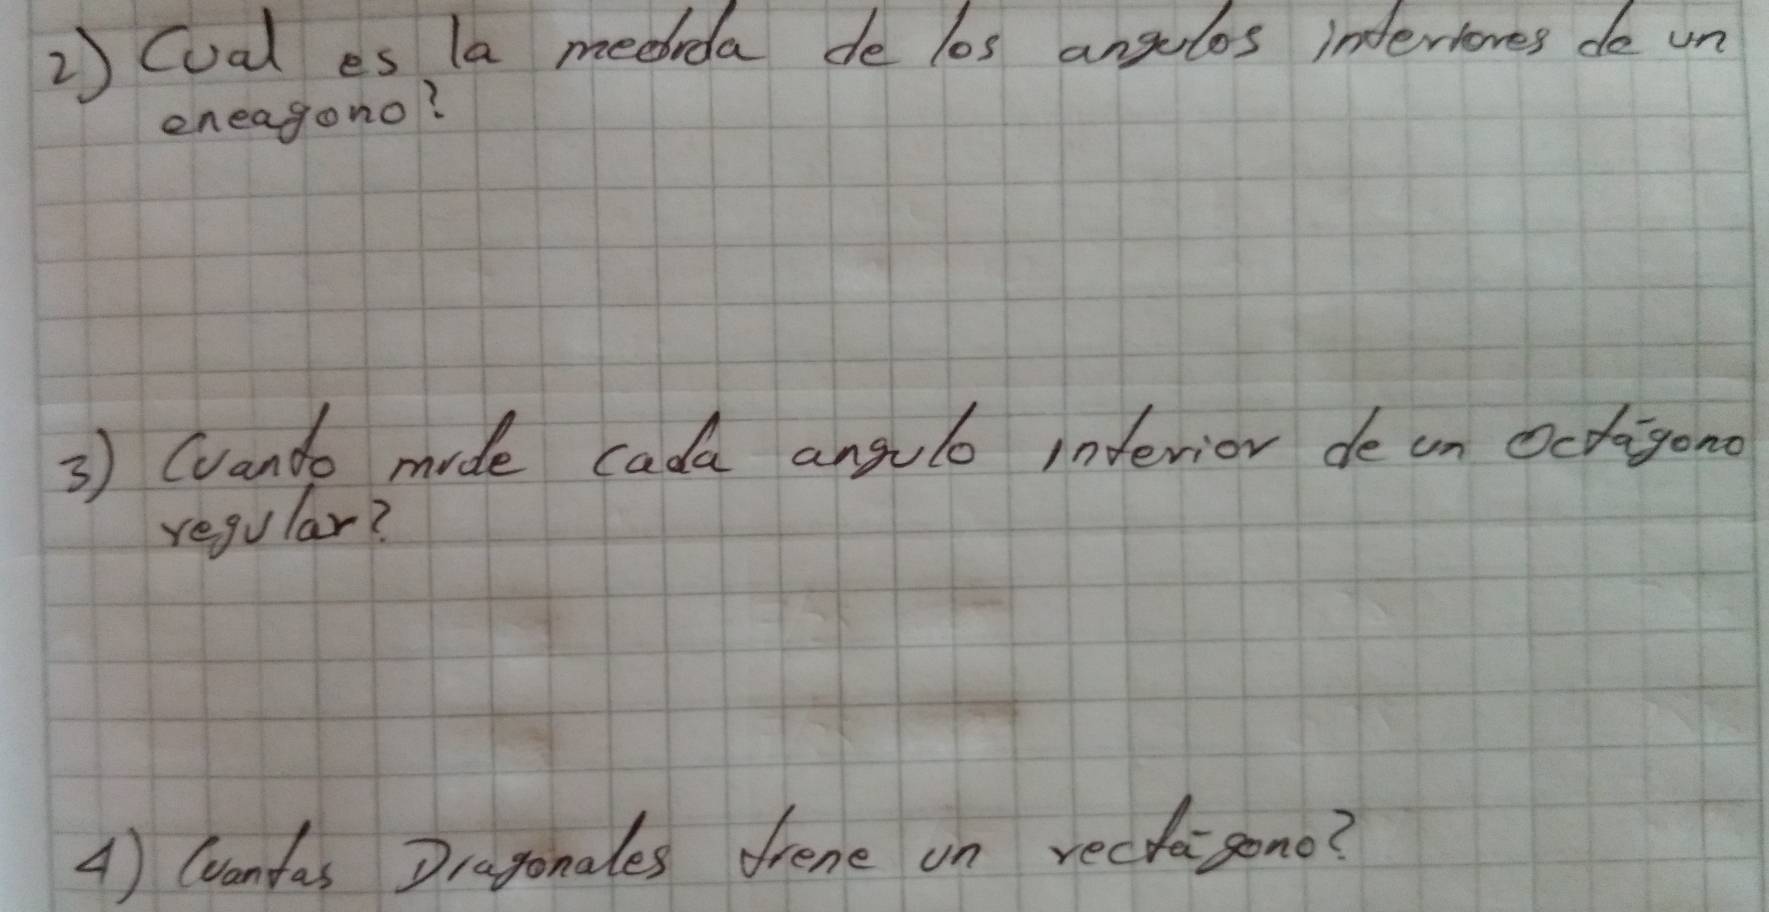 2) Cual es la medida de los angulos interiores de un
eneagono?
3) Cuanto mide cada angulo interior de un Octágono
regular?
4) Cuantas Diagonales tiene un rectágono?